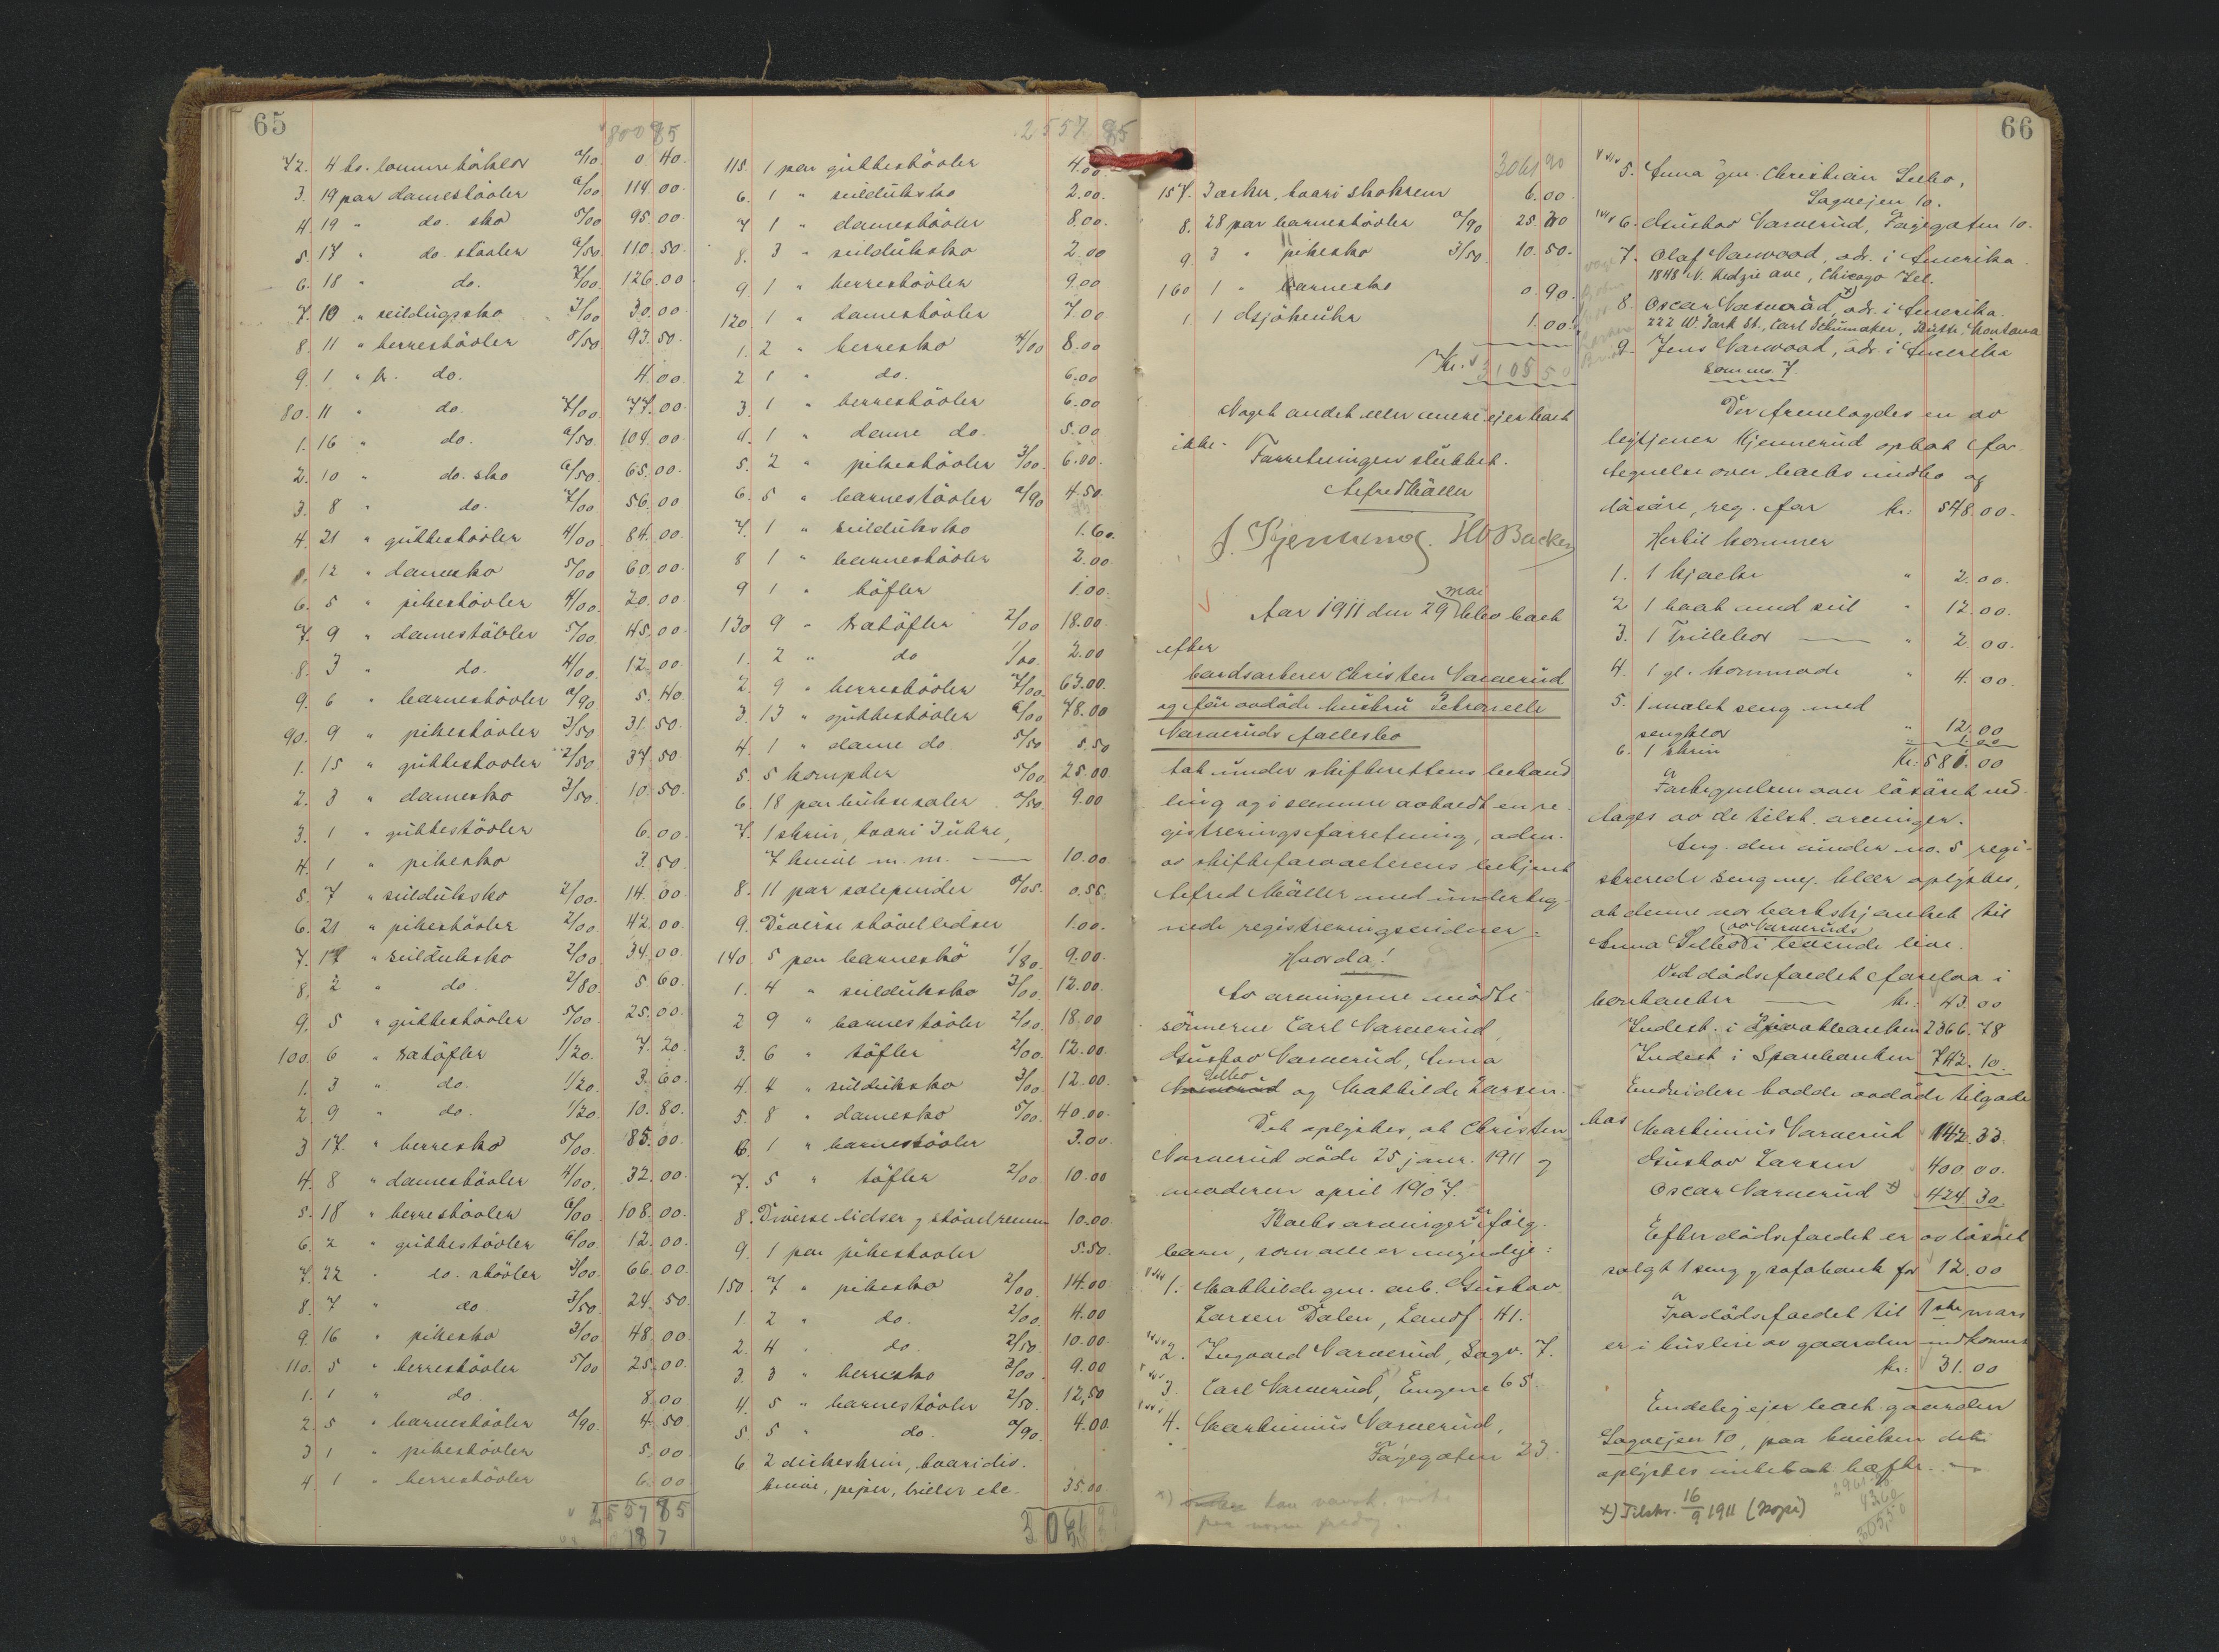 65
80085
72. 4 st. lommetörklær a/10. 0.40
3. 19 par damestövler 6/00 114.00
4. 19 " do. sko 5/00 95.00
5. 17 " do. stövler 6/50 110.50
6. 18 " do. 7/00 126.00
7. 10 " seildugssko 3/00 30.00
8. 11 " herrestövler 8/50 93.50
9. 1 " do. 4.00
80. 11 " do. 7/00 77.00
1. 16 " do. 6/50 104.00
2. 10 " do. sko 6/50 65.00
3. 8 " do. 7/00 56.00
4. 21 " guttestövler 4/00 84.00
5. 12 " damesko 5/00 60.00
6. 5 " pikestövler 4/00 20.00
7. 9 " damestövler 5/00 45.00
8. 3 " do. 4/00 12.00
9. 6 " barnestövler 0/90 5.40
90. 9 " pikestövler 3/50 31.50
1. 15 " guttestövler 2/50 37.50
2. 3 " damesko 3/50 10.50
3. 1 " guttestövler 6.00
4. 1 " pikesko 3.50
5. 7 " seilduksko 2/00 14.00
6. 21 " pikestövler 2/00 42.00
7. 17 " seilduksko 2/00 34.00
8. 2 " do. 2/80 5.60
9. 5 " guttestövler 5/00 25.00
100. 6 " tatöfler 1/20 7.20
1. 3 " do. 1/20 3.60
2. 9 " do. 1/20 10.80
3. 17 " herresko 5/00 85.00
4. 8 " damestövler 4/00 32.00
5. 18 " herrestövler 6/00 108.00
6. 2 " guttestövler 6/00 12.00
7. 22 " do. stövler 3/00 66.00
8. 7 " do 3/50 24.50
9. 16 " pikesko 3/00 48.00
110. 5 " herrestövler 5/00 25.00
1. 1 " do 8.00
2. 5 " barnestövler 0/90 4.50
3. 1 " pikestövler 5.00
4. 1 " herrestövler 6.00
2557 85
187
2557 85
115. 1 par guttestövler 4.00
6. 1 " seilduksko 2.00
7. 1 " damestövler 8.00
8. 3 " seilduksko 2.00
9. 1 " herrestövler 9.00
120. 1 " damestövler 7.00
1. 2 " herresko 4/00 8.00
2. 1 " do. 6.00
3. 1 " herrestövler 6.00
4. 1 " dame do. 5.00
5. 2 " pikestövler 3/00 6.00
6. 5 " barnestövler 0/90 4.50
7. 1 " seilduksko 1.60
8. 1 " barnestövler 2.00
9. 1 " töfler 1.00
130. 9 " tatöfler 2/00 18.00
1. 2 " do 1/00 2.00
2. 9 " herrestövler 7/00 63.00
3. 13 " guttestövler 6/00 78.00
4. 1 " dame do. 5/50 5.50
5. 5 kompter 5/00 25.00
6. 18 par buksesæler 0/50 9.00
7. 1 skrin, hvori
7 knive m.m. 10.00
8. 11 par solepinder 0/05 0.55
9. Diverse stövellidser 1.00
140. 5 par barnesko 1/80 9.00
1. 4 " seilduksko 3/00 12.00
2. 9 " barnestövler 2/00 18.00
3. 6 " töfler 2/00 12.00
4. 4 " seilduksko 3/00 12.00
5. 8 " damesko 5/00 40.00
6. 1 " barnestövler 3.00
7. 5 " töfler 2/00 10.00
8. Diverse lidser og stövelremmer 10.00
9. 1 par pikestövler 5.50
150. 7 " pikesko 2/00 14.00
1. 2 " do. 2/00 4.00
2. 4 " do. 2/50 10.00
3. 3 " herresko 3/00 9.00
4. 5 " barnestövler 2/50 12.50
5. 5 " do. 0/90 4.00
6. 2 diskeskrin, hvori div.
knive, piper, briller etc. 35.00
3061
3061 90
157. æsker, hvori skokrem 6.00
8. 28 par barnestövler 0/90 25.20
9. 3 " pikesko 3/50 10.50
160. 1 " barnesko 0.90
1. 1 1.00
Kr. 3105 50
Noget andet eller mere ejer boet
ikke.
Forretningen sluttet.
Alfred Møller
J. Kjennerud. H O Backen
Aar 1911 den 29 mai blev boet
efter
bordsarbeier Christen Narverud
og før avdöde hustru Petronelle
Narveruds fællesbo
tat under skifterettens behand
ling og i samme avholdt en re-
gistreringsforretning, adm.
av skifteforvalterens betjent
Alfred Møller med underteg-
nede registreringsvidner.
Hvorda!
Av arvingerne mödte
sönnerne Carl Narverud,
Gustav Narverud, Anna
Selbo og Mathilde Larsen.
Det oplystes, at Christen
Narverud döde 25 janr. 1911 og
moderen april 1907.
Boets arvinger er fölg.
barn, som alle er myndige:
1. Mathilde gm. arb. Gustav
Larsen Dalen, Landf. 41.
2. Ingvald Narverud, Sagv. 7.
3. Carl Narverud, Engene 65.
4. Martinius Narverud,
Fayegaten 23.
66
5. Anna gm. Christian Selbo,
Sagvejen 10.
6. Gustav Narverud, Fayegaten 10.
7. Olaf Narwood, adr. i Amerika
1848 N. Kedzie ave, Chicago Ill.
8. Oscar Narverud x), adr. i Amerika.
222 W. Park St., Carl Schumaker, Butte, Montana
9. Jens Narwood, adr. i Amerika
som no. 7.
Der fremlagdes en av
lejtjener Kjennerud optat for-
tegnelse over boets indbo og
lösöre, reg. for kr: 548.00.
Hertil kommer
1. 1 kjælke " 2.00.
2. 1 baat med seil " 12.00.
3. 1 Trillebör " 2.00.
4. 1 gl. kommode " 4.00.
5. 1 malet seng med
sengklær " 12.00
6. 1 skrin " 1.00
Kr: 581.00
Fortegnelsen over lösöret ved-
tages av de tilst. arvinger.
Ang. den under no. 5 regi-
strerede seng m. klær oplystes,
at denne var bortskjænket til
Anna Selbo i av Narveruds levende live.
Ved dödsfaldet forelaa i
kontanter kr: 43.00
Indest. i Privatbanken 2366.78
Indest i Sparebanken 742.10.
Endvidere hadde avdöde tilgode
hos Martinius Narverud 142.33.
Gustav Larsen 400.00.
Oscar Narverud x) 424.30
Efter dödsfaldet er av lösöret
solgt 1 seng og sofabenk for 12.00
Fra dödsfaldet til 1ste mars
er i husleie av gaarden indkommet
kr: 31.00
Endelig ejer boet gaarden
Sagvejen 10, paa hvilken det
oplystes intet at hæfte.
x) Tilskr. 16/9 1911 (kopi)